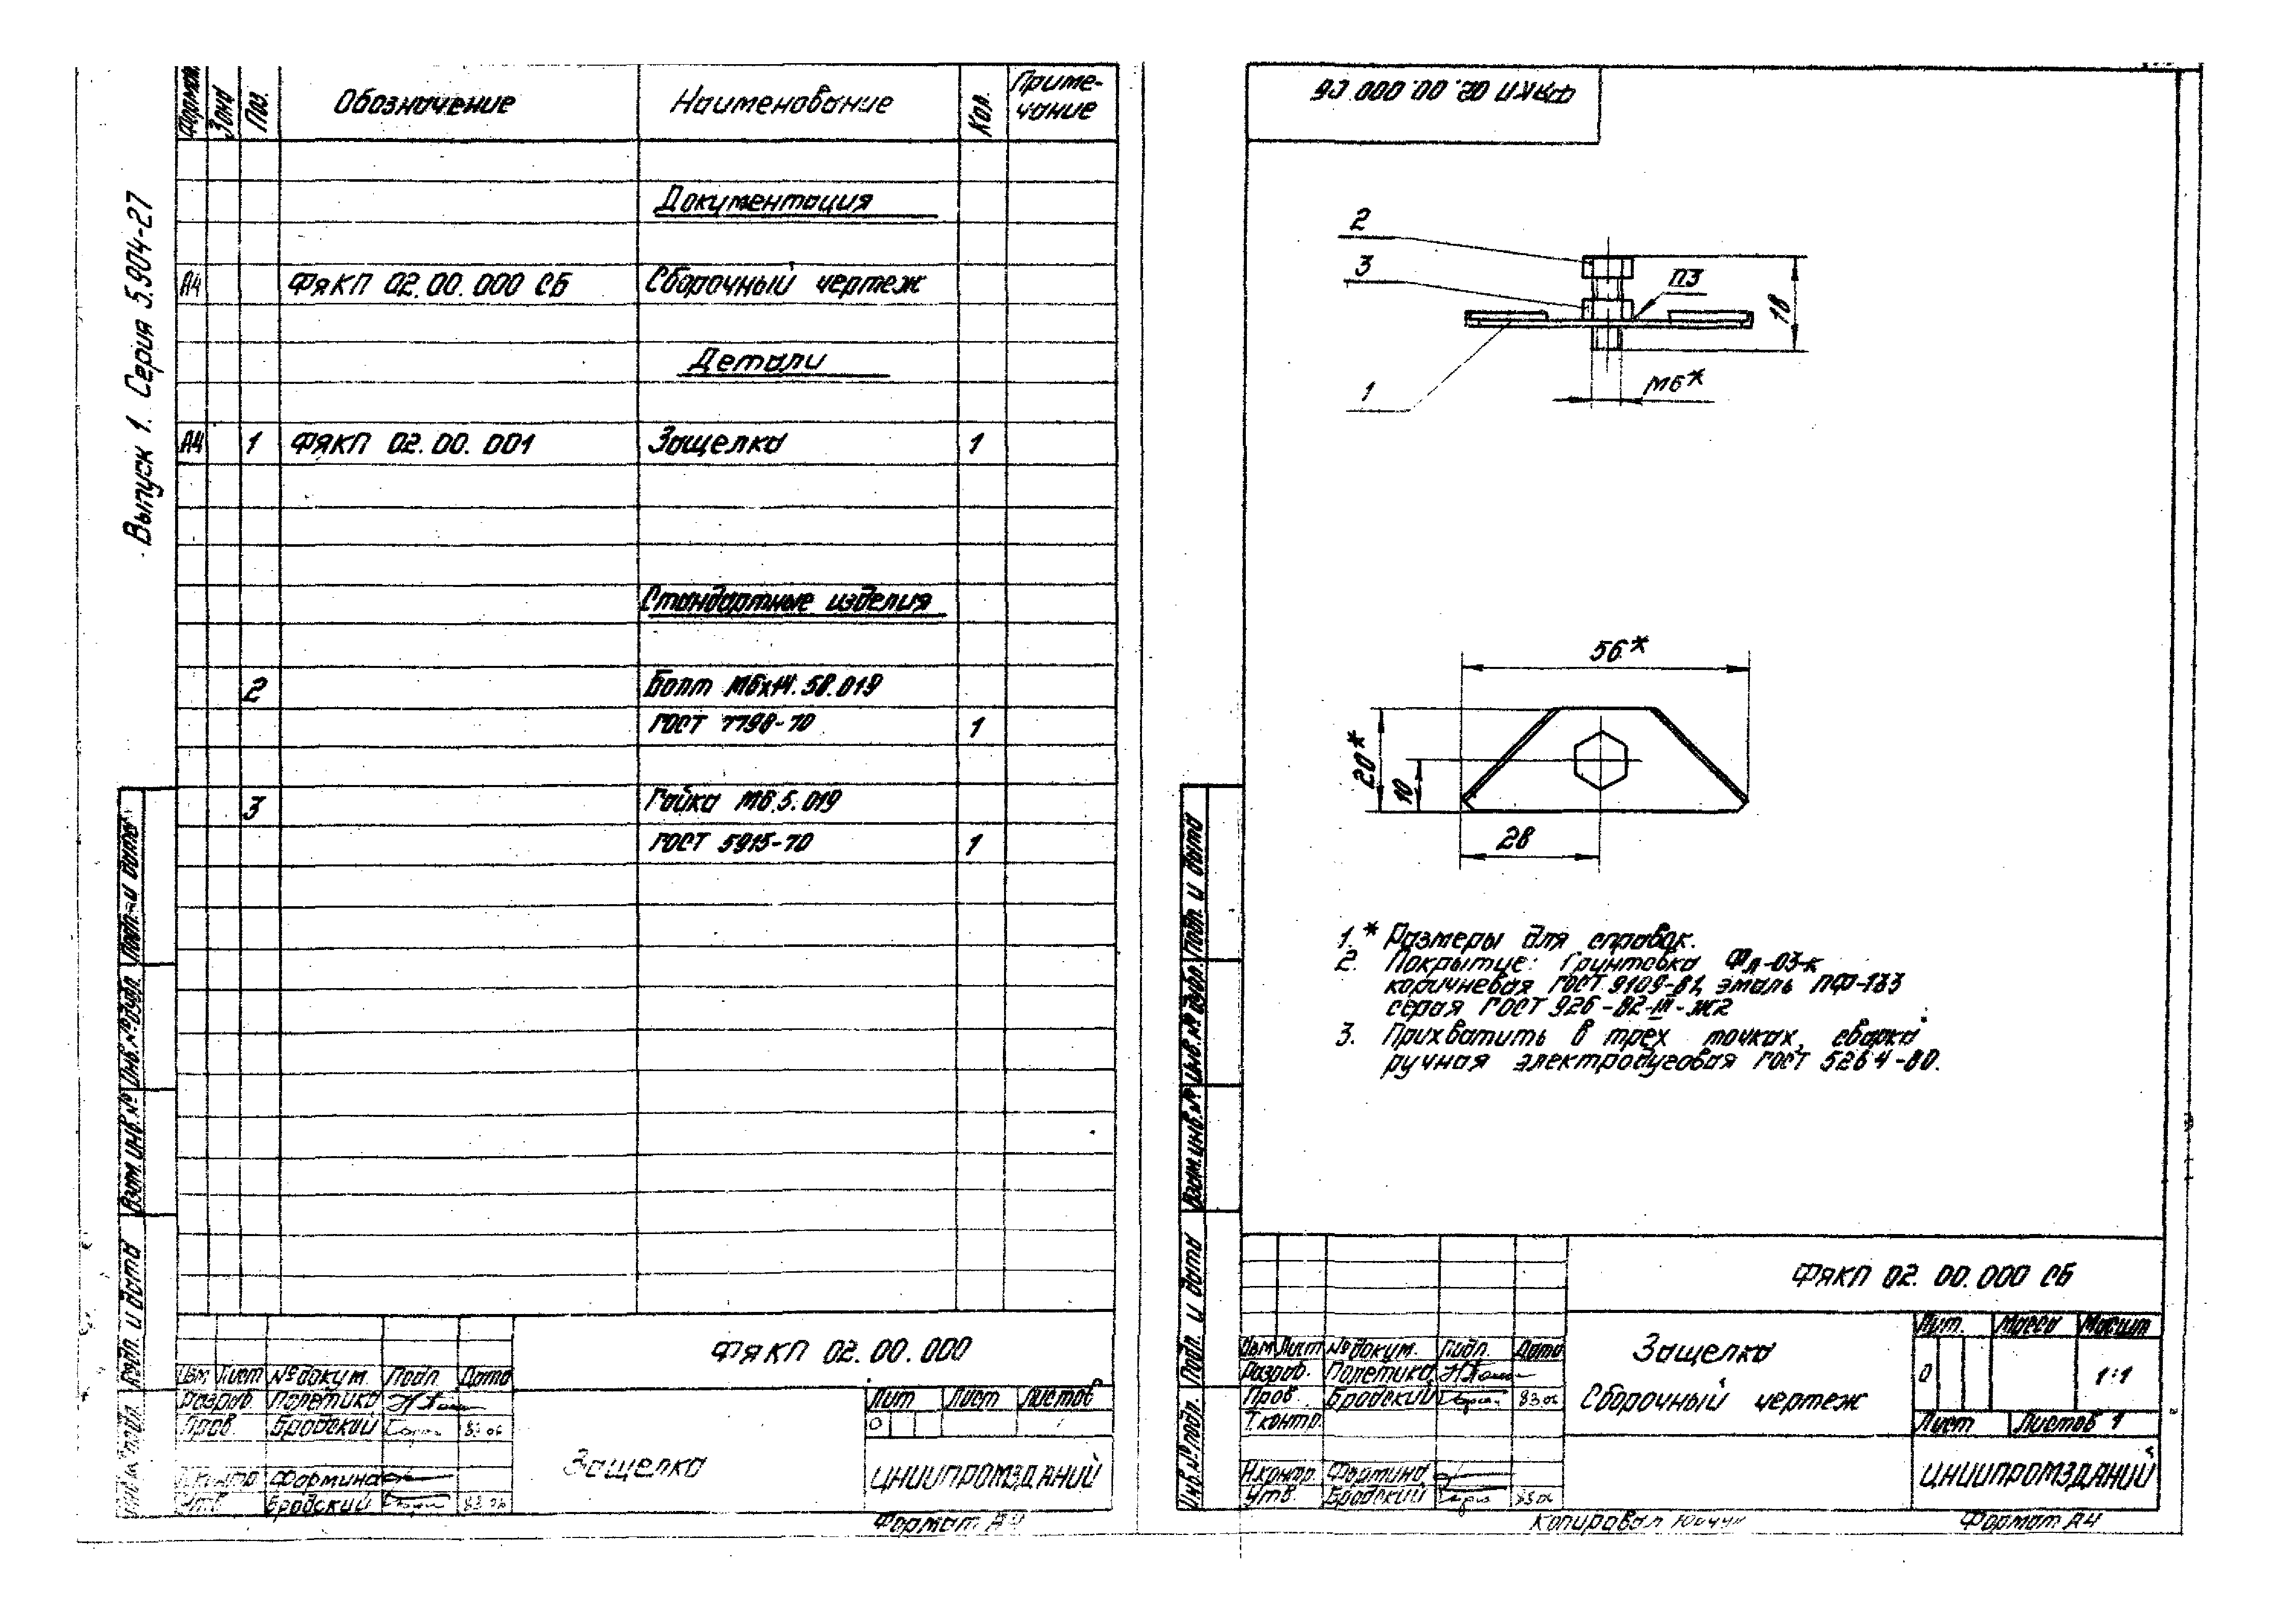 Выпуск 1. Серия 5.904-27
Формат Зона Поз. Обозначение Наименование Кол. Приме-
чание
Документация
А4 ФЯКП 02.00.000 СБ Сборочный чертеж
Детали
А4 1 ФЯКП 02.00.001 Защелка 1
Стандартные изделия
2 Болт М6х14.58.019
ГОСТ 7798-70 1
3 Гайка М6.5.019
ГОСТ 5915-70 1
Подп. и дата
Инв.№ дубл.
Взам.инв.№
Подп. и дата
Инв.№ подл.
ФЯКП 02.00.000
Изм Лист № докум. Подп Дата
Разраб. Полетика
Пров. Бродский 83.06
Н.контр. Фортина
Утв. Бродский 83.06
Защелка
Лит Лист Листов
О 1
ЦНИИПРОМЗДАНИЙ
Формат А4
ФЯКП 02.00.000 СБ
2
3
П3
18
1
М6*
56*
20*
10
28
1.* Размеры для справок.
2. Покрытие: Грунтовка ФЛ-03-К
коричневая ГОСТ 9109-81, эмаль ПФ-133
серая ГОСТ 926-82-III-Ж2
3. Прихватить в трех точках, сварка
ручная электродуговая ГОСТ 5264-80.
Подп. и дата
Инв.№ дубл.
Взам.инв.№
Подп. и дата
Инв.№ подл.
ФЯКП 02.00.000 СБ
Изм Лист № докум. Подп. Дата
Разраб. Полетика
Пров. Бродский 83.06
Т.контр.
Н.контр. Фортина
Утв. Бродский 83.06
Защелка
Сборочный чертеж
Лит. Масса Масшт
О 1:1
Лист Листов 1
ЦНИИПРОМЗДАНИЙ
Копировал
Формат А4